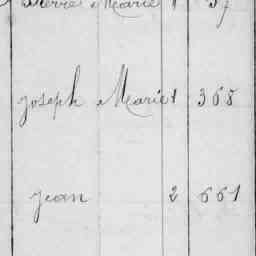 Pierre Marie 1 37
Joseph Marie 1 368
Jean 2 661